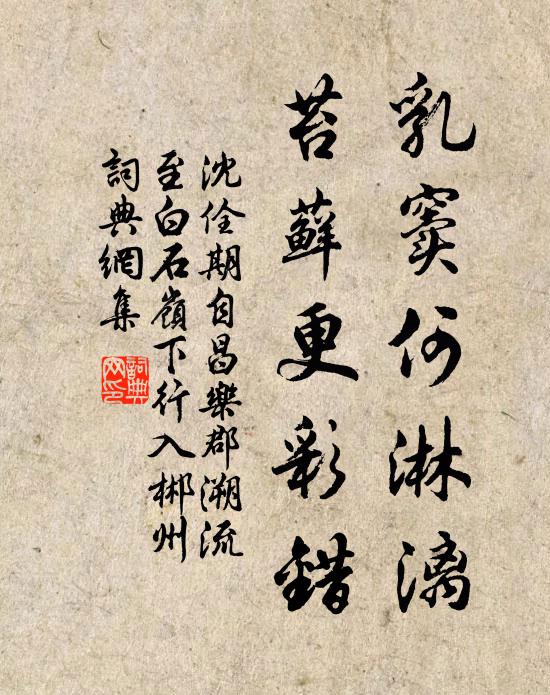 乳竇何淋漓
苔蘚更彩錯
沈佺期自昌樂郡溯流
至白石嶺下行入郴州
詞典網集
詞典
网印